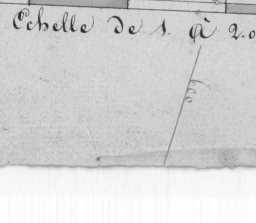 Echelle de 1. à 2.0